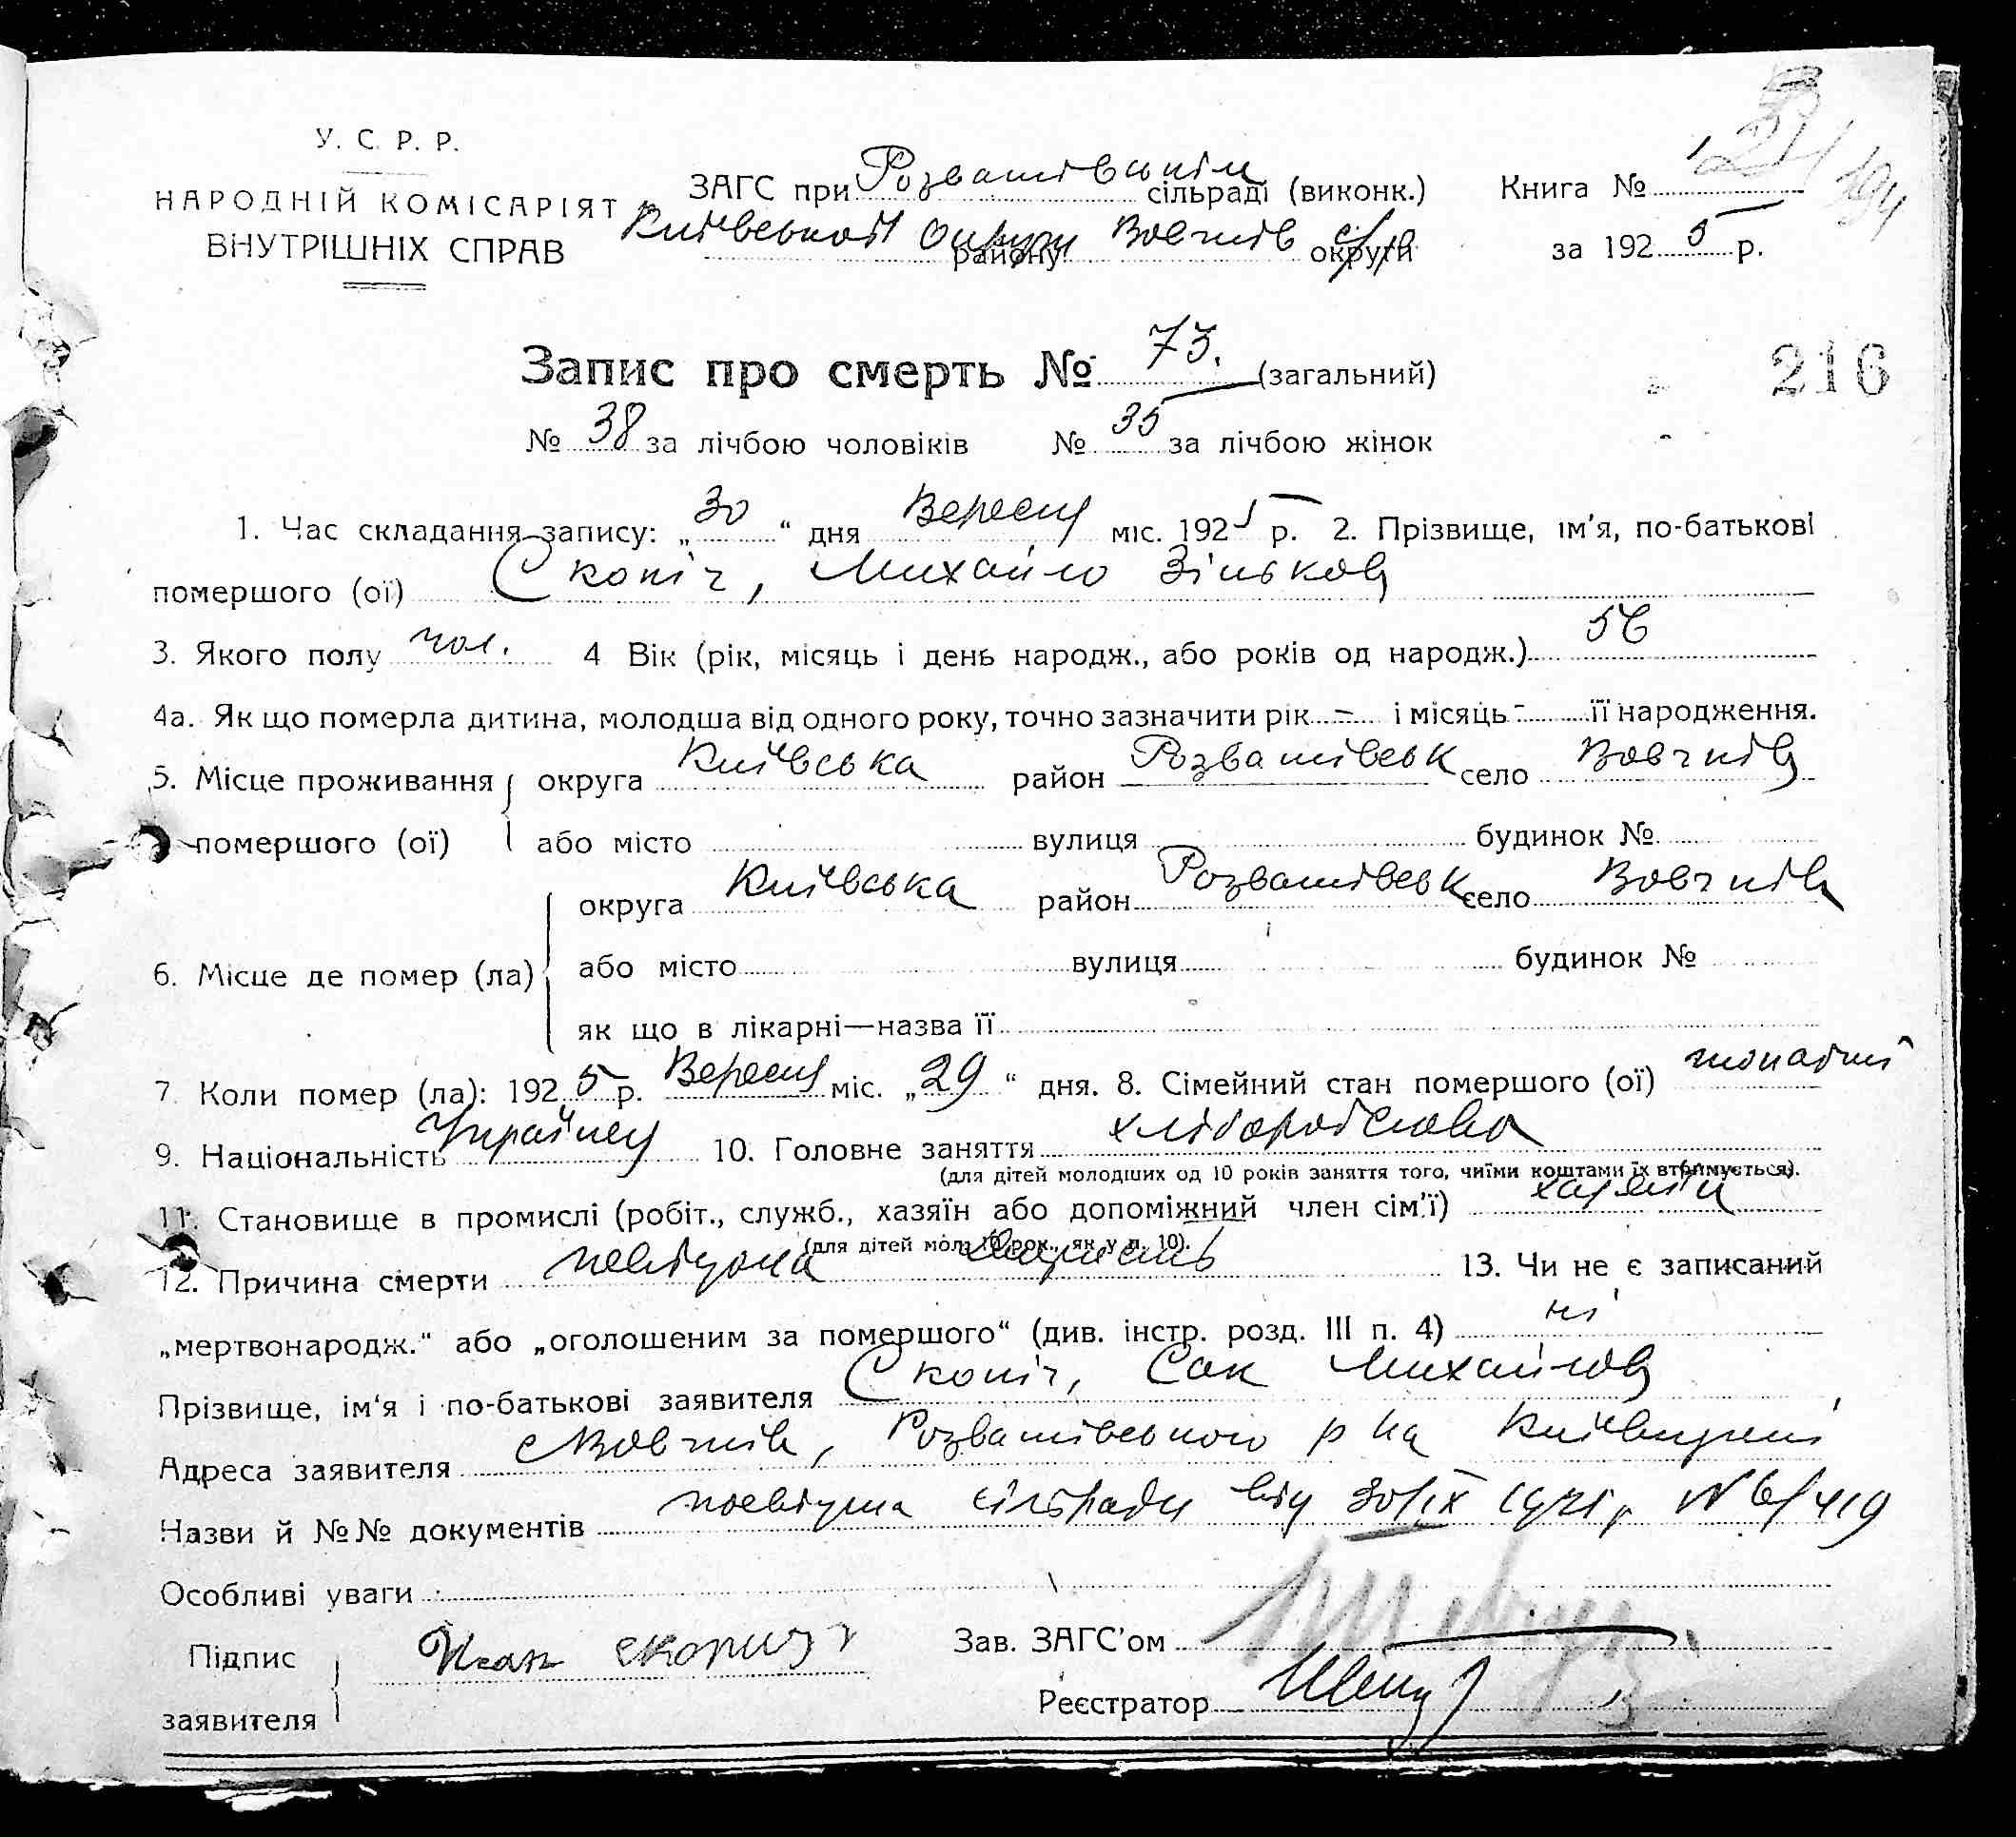 У. С. Р. Р.
НАРОДНІЙ КОМІСАРІЯТ
ВНУТРІШНІХ СПРАВ
ЗАГС при Розважівськім сільраді (виконк.)
Київської Округи району Вовчків с/р округи
Книга №
за 1925 р.
194
Запис про смерть № 73. (загальний)
216
№ 38 за лічбою чоловіків № 35 за лічбою жінок
1. Час складання запису: „30“ дня Вересня міс. 1925 р. 2. Прізвище, ім'я, по-батькові
помершого (ої) Скопіч, Михайло Зіньков
3. Якого полу чол. 4 Вік (рік, місяць і день народж., або років од народж.) 56
4а. Як що померла дитина, молодша від одного року, точно зазначити рік - і місяць - її народження.
5. Місце проживання округа Київська район Розважівськ село Вовчків
помершого (ої) або місто вулиця будинок №
округа Київська район Розважівськ село Вовчків
6. Місце де помер (ла) або місто вулиця будинок №
як що в лікарні—назва її
7. Коли помер (ла): 1925 р. Вересня міс. „29“ дня. 8. Сімейний стан помершого (ої) жонатий
9. Національність Українец 10. Головне заняття хліборобство
(для дітей молодших од 10 років заняття того, чиїми коштами їх втримується).
11. Становище в промислі (робіт., служб., хазяїн або допоміжний член сім'ї) хазяїн
(для дітей мол. 10 рок., як у п. 10).
12. Причина смерти невідома 13. Чи не є записаний
„мертвонародж.“ або „оголошеним за помершого“ (див. інстр. розд. III п. 4) ні
Прізвище, ім'я і по-батькові заявителя Скопіч, Сак Михайлов
Адреса заявителя с Вовчків, Розважівського р на Київщині
Назви й №№ документів посвідка сільради від 30/IX 1925 р № 6/419
Особливі уваги
Підпис
заявителя
Зав. ЗАГС'ом
Реєстратор